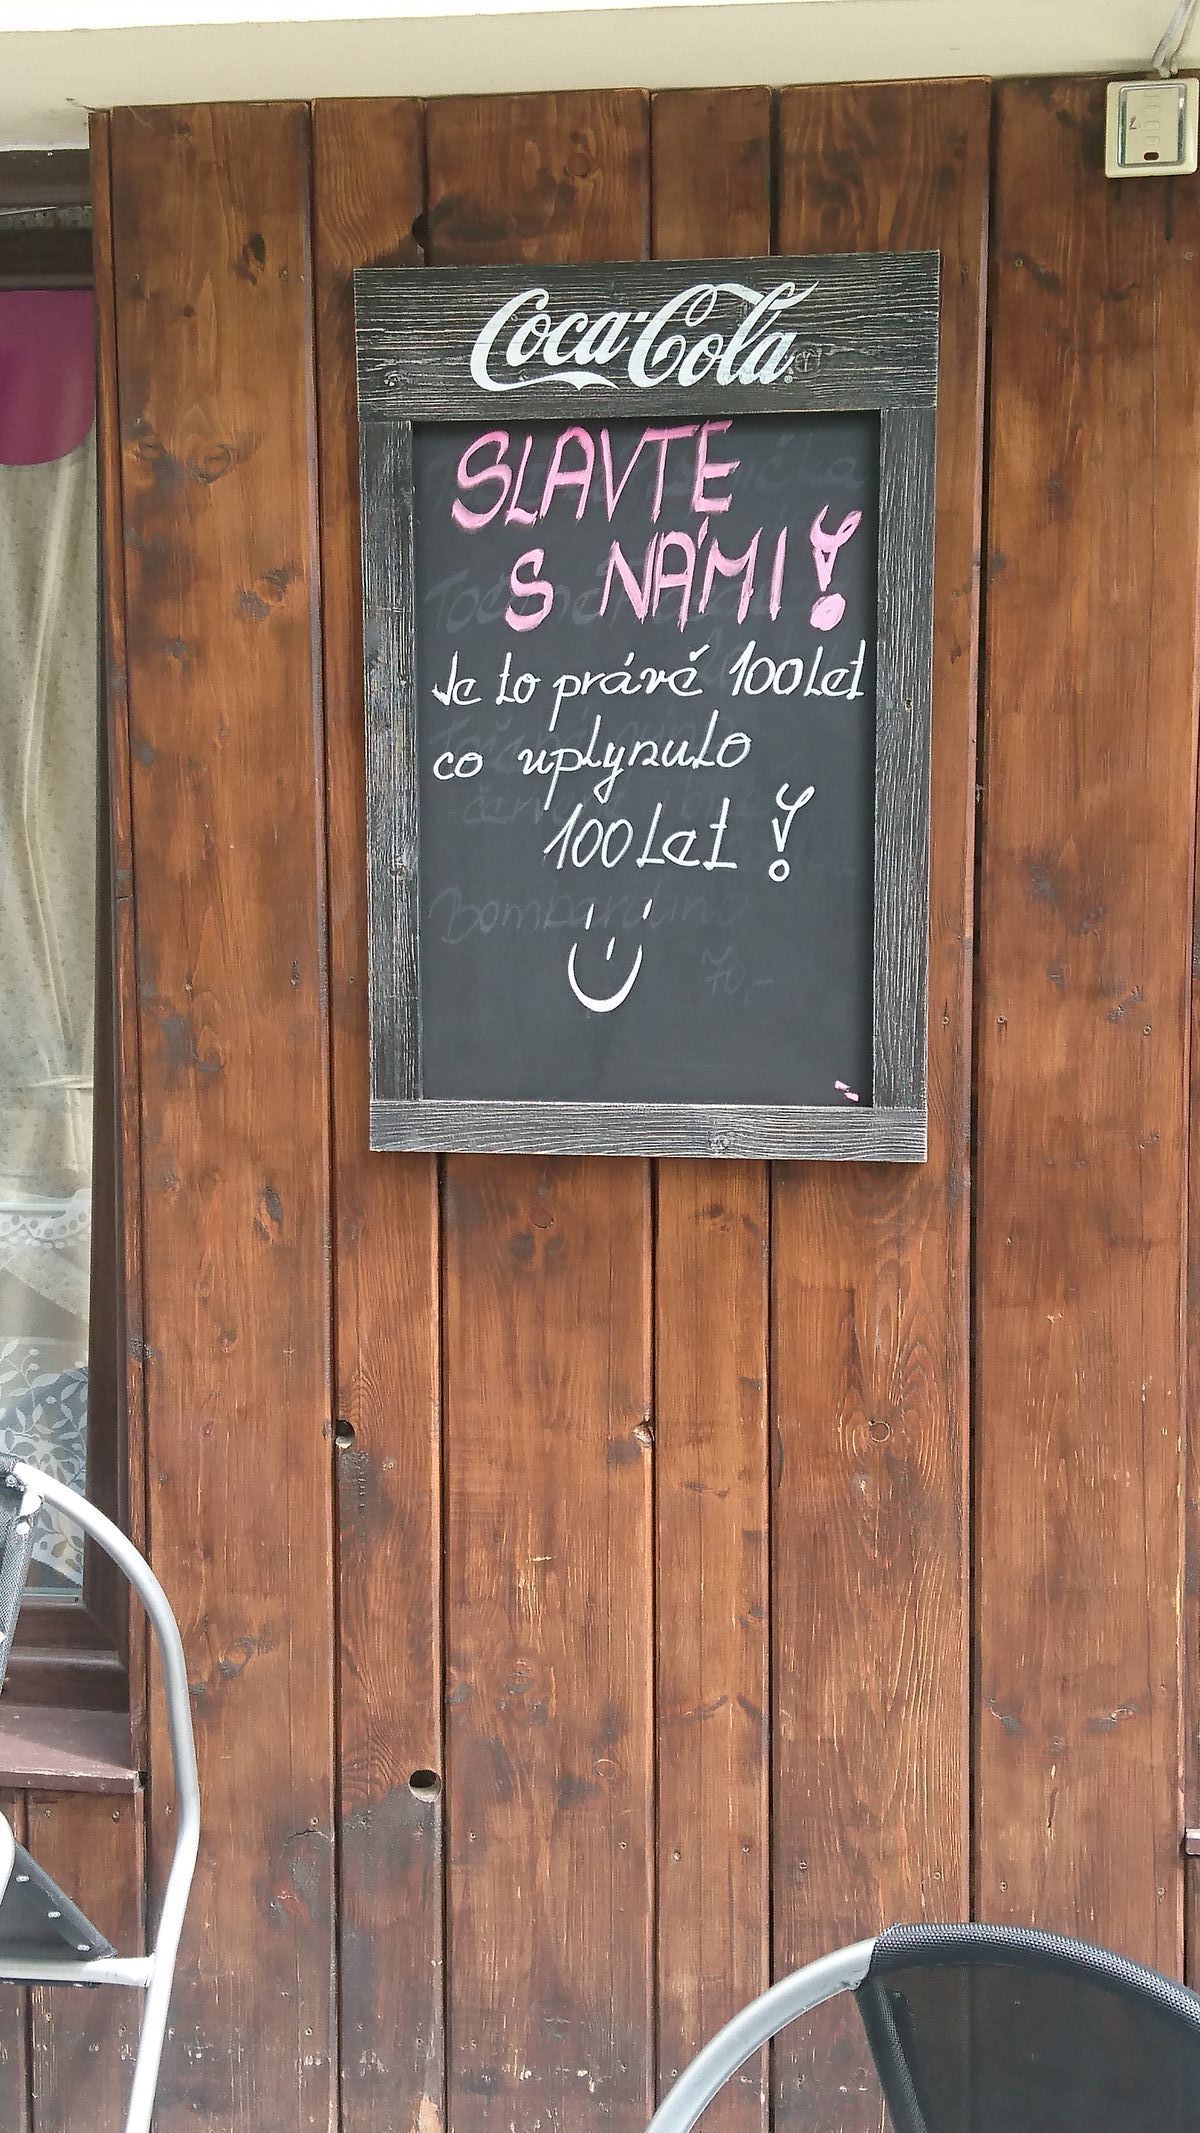 Coca-Cola
SLAVTE
S NÁMI!
Je to právě 100 let
co uplynulo
100 let!
Bombardino
70,-